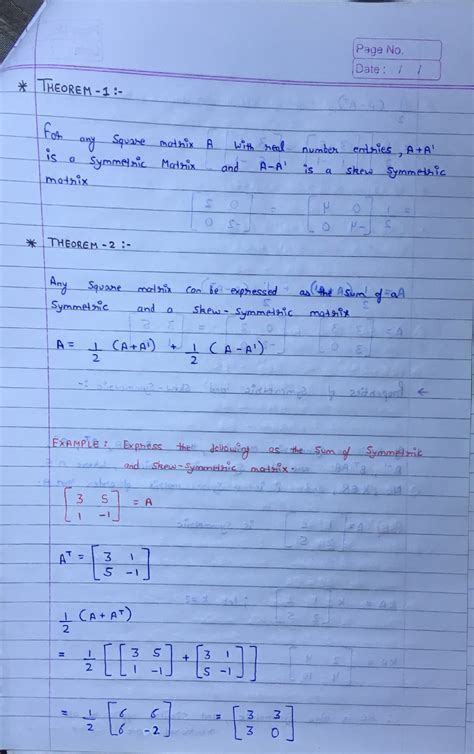 Page No.
Date : / /
* THEOREM -1 :-
For any Square matrix A with real number entries, A+A'
is a Symmetric Matrix and A-A' is a skew symmetric
matrix
* THEOREM -2 :-
Any Square matrix can be expressed as the sum of a
Symmetric and a Skew-Symmetric matrix
A = 1/2 (A+A') + 1/2 (A-A')
EXAMPLE: Express the following as the sum of Symmetric
and Skew-Symmetric matrix.
[3 5; 1 -1] = A
Aᵀ = [3 1; 5 -1]
1/2 (A+Aᵀ)
= 1/2 [[3 5; 1 -1] + [3 1; 5 -1]]
= 1/2 [6 6; 6 -2] = [3 3; 3 0]